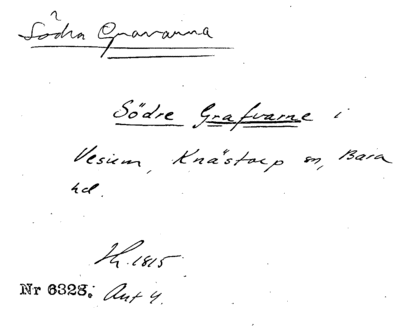 ?
Södra Gravarna
Södre Grafvarne i
Vesum, Knästorp sn, Bara
hd.
1815
Nr 6328. Ant 4.